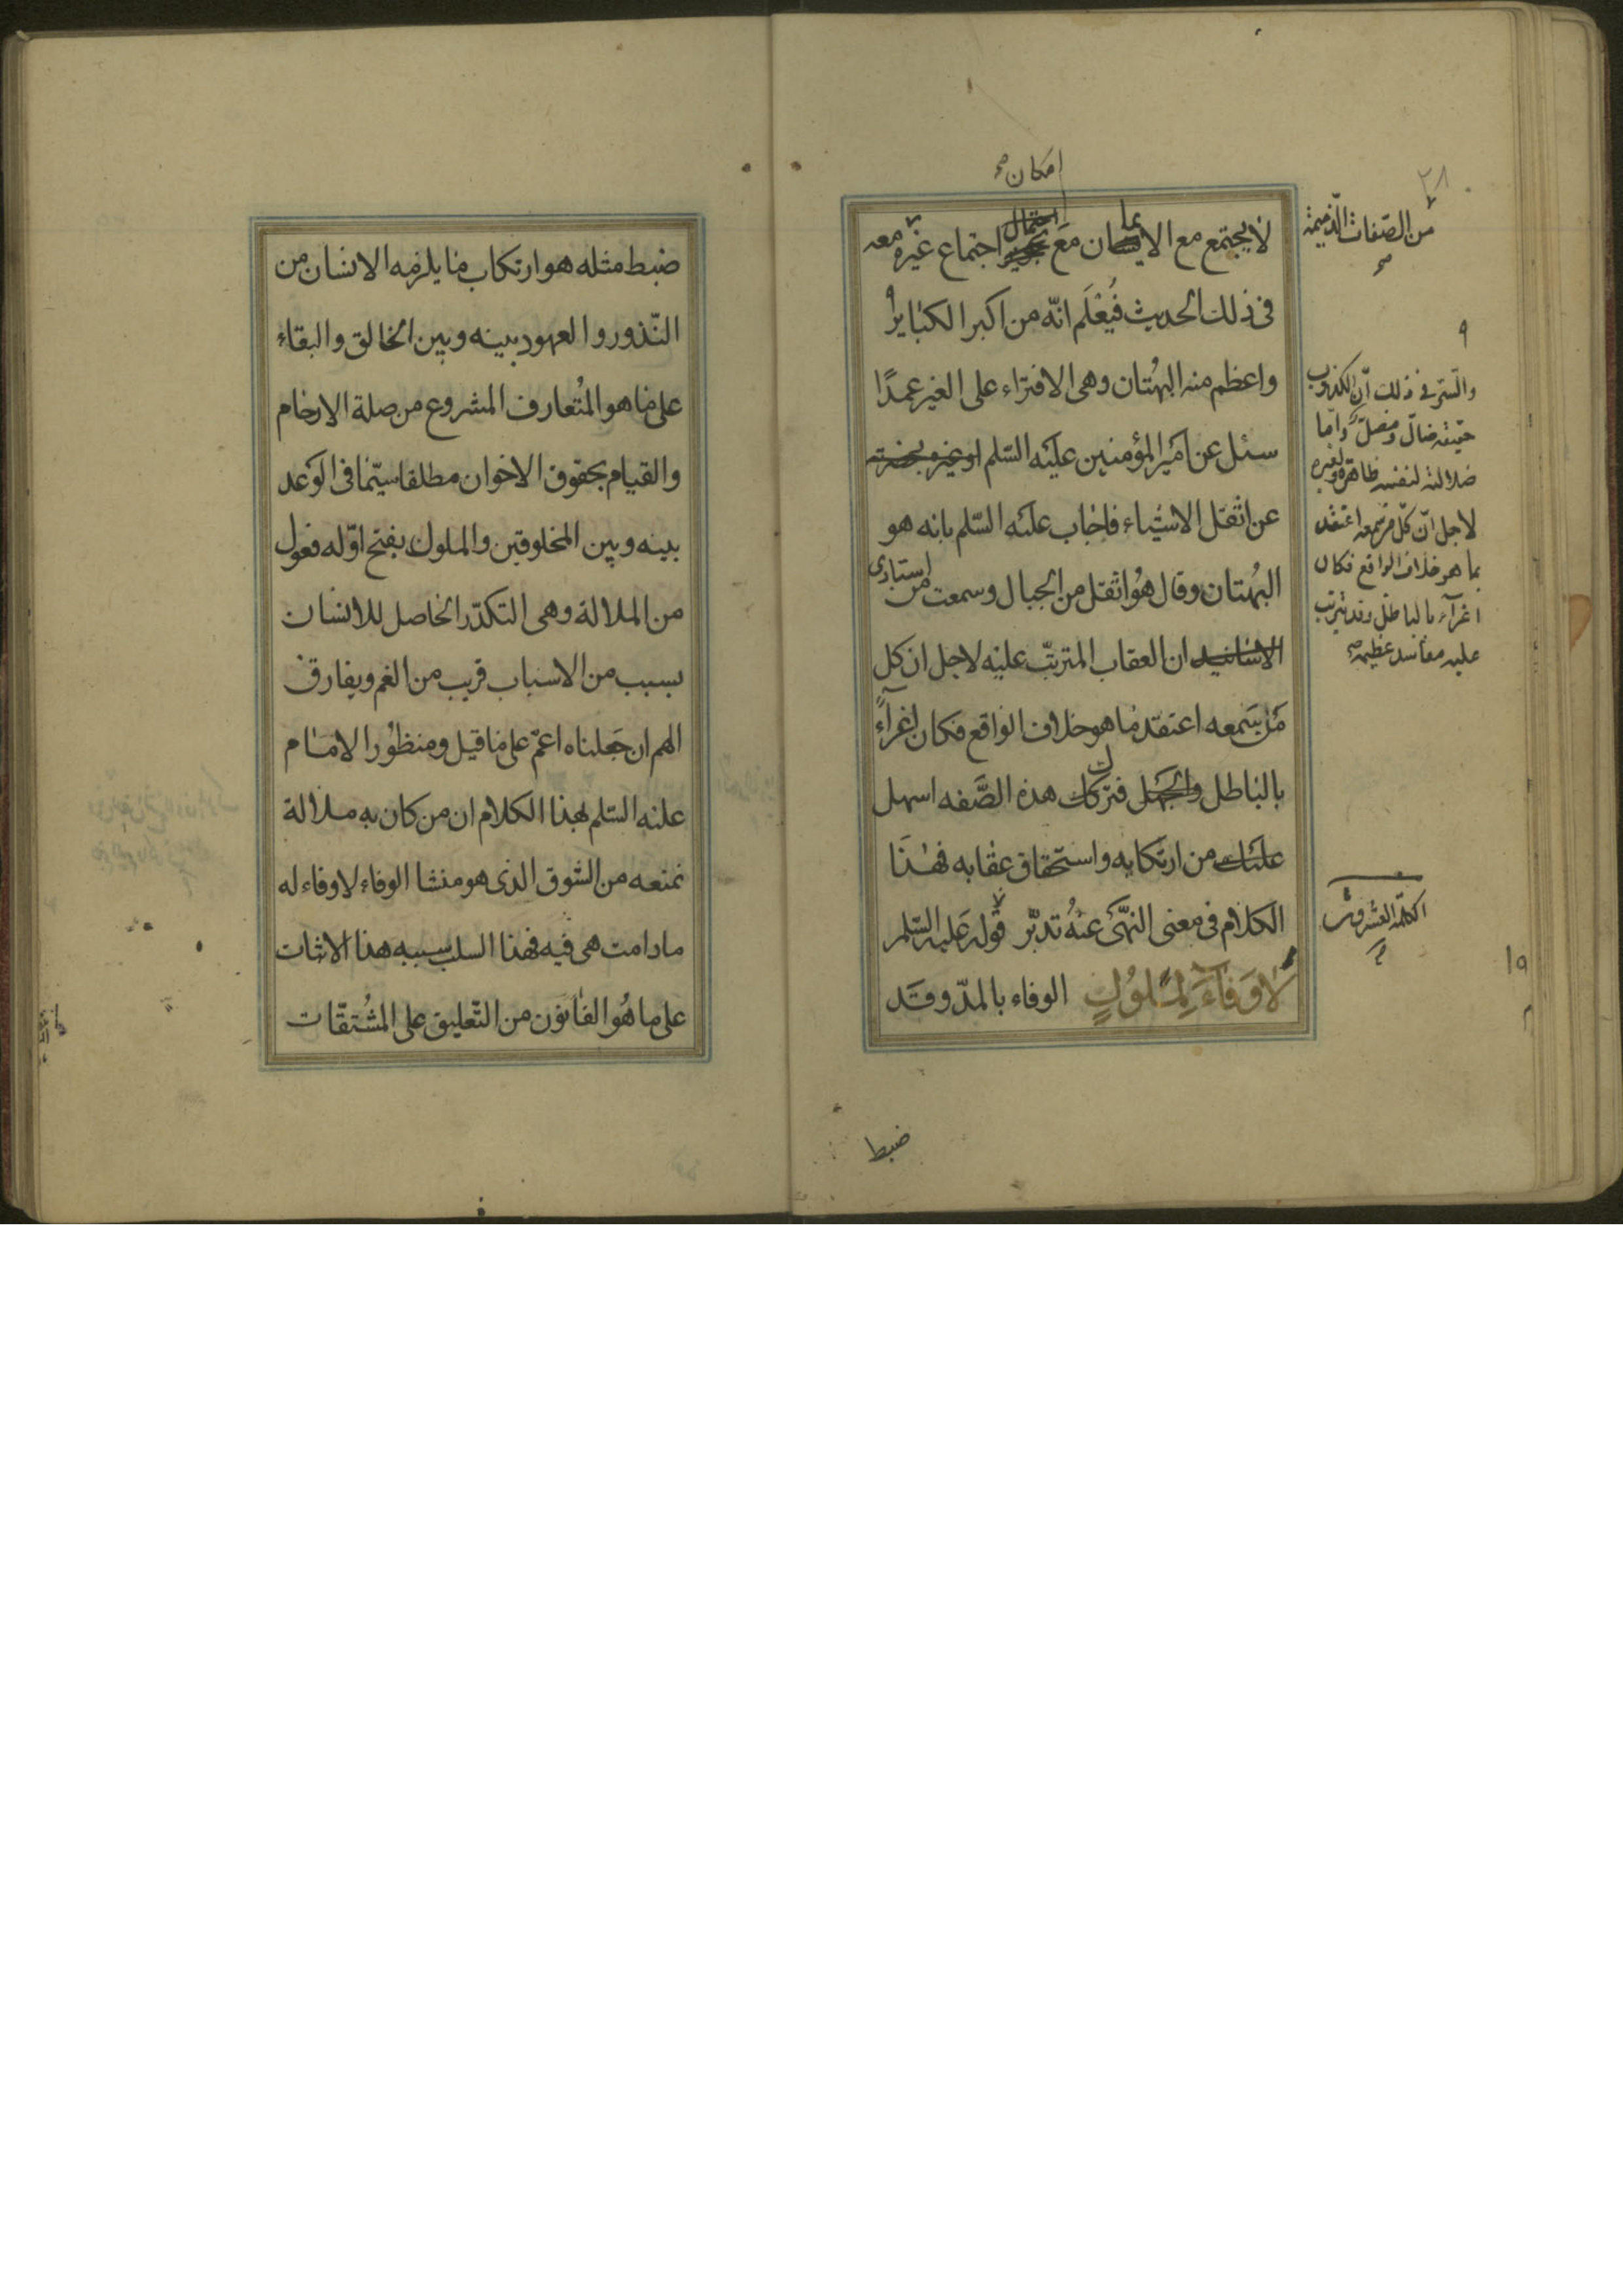 امكان صح
لا يجتمع مع الايمان مع احتمال اجتماع غيره معه
من الصّفات الذّميمة
صح
فى ذلك الحديث فيُعْلَم انّه من اكبر الكبٰاير
واعظم منه البهُتان وهى الافتراء على الغير عمدًا
سئل عن امَير المؤمنين عليَه السّلم او غيره بحضرته
عن اثقل الاشيٰاء فاجٰاب عليَه السّلم بانه هو
البُهتان وقال هُو اثقل من الجبال وسمعت من استادى
الاسٰانيد ان العقاب المترتبّ عليْه لاجل ان كل
مَن يَسمعه اعتقد مٰا هو خلاف الوٰاقع فكان اِغرآءً
بالبٰاطل والجهل فترك هذه الصَّفه اسهل
عليَك من ارتكابه واستحقاق عقٰابه فهٰذٰا
الكلٰام فى معنى النهّى عنْهُ تدبّر قوله عَليه السّلم
لٰا وَفٰآءَ لِمَلُولٍ الوفاء بالمدّ وقَد
والسّر فى ذلك انّ الكذوب
حقيقة ضالّ ومضلّ وامّا
ضلالته لنفسه ظاهر ولغيره
لاجل انّ كلّ من يسمعه اعتقد
بما هو خلاف الواقع فكان
اغرآء بالباطل وقد يترتب
عليه مفاسد عظيمة صح
الكلمة العشرون
ضبط
ضبط مثله هو ارتكاب مٰا يلزمه الانسٰان من
النّذور والعهود بينه وبين الخٰالق والبقاء
على مٰا هو المُتعارف المشروع من صلة الارحٰام
والقيام بحقوق الاخوان مطلقا سيّمٰا فى الوَعد
بينه وبين المخلوقين والملول بفتح اوّله فعول
من الملالة وهى التكدّر الحٰاصل للانسٰان
بسبب من الاسبٰاب قريب من الغم ويفارق
الهم ان جَعلناه اعمّ على مٰا قيل ومنظوُر الامٰام
عليْه السّلم بهذا الكلام ان من كان به ملالة
تمنعه من الشوق الذى هو منشا الوفاء لا وفاء له
مادامت هى فيه فهذا السلب سببه هذا الاثبات
على ما هُو القٰانوَن من التّعليق على المشُتقّات